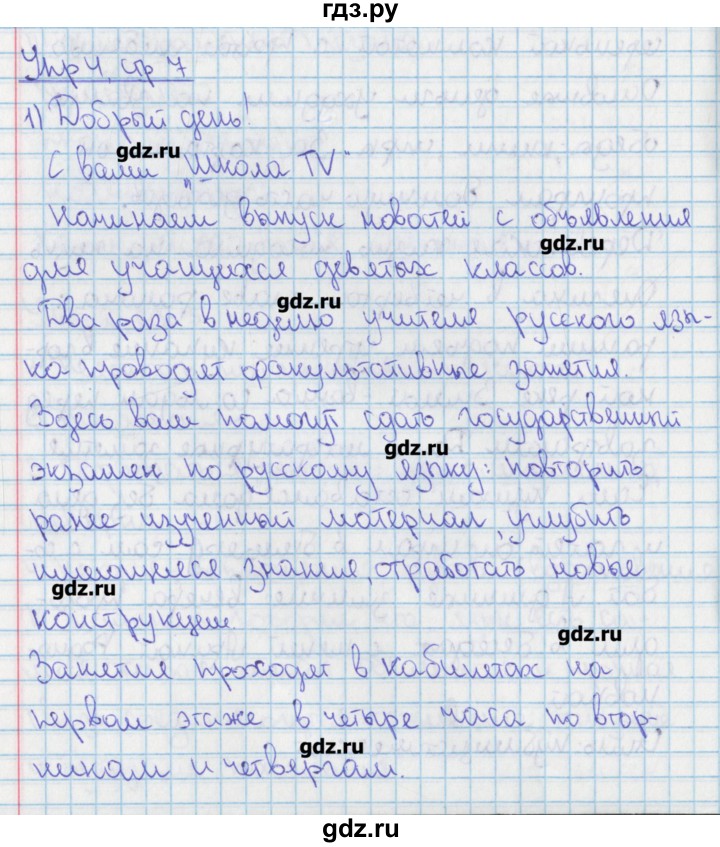 гдз.ру
Упр 4, стр 7
1) Добрый день!
gdz.ru
С вами „Школа TV“
Начинаем выпуск новостей с объявления
gdz.ru
для учащихся девятых классов.
gdz.ru
Два раза в неделю учителя русского язы-
ка проводят факультативные занятия.
Здесь вам помогут сдать государственный
gdz.ru
экзамен по русскому языку: повторить
ранее изученный материал, углубить
имеющиеся знания, отработать новые
gdz.ru
конструкции
gdz.ru
Занятия проходят в кабинетах на
первом этаже в четыре часа по втор-
gdz.ru
никам и четвергам.
gdz.ru